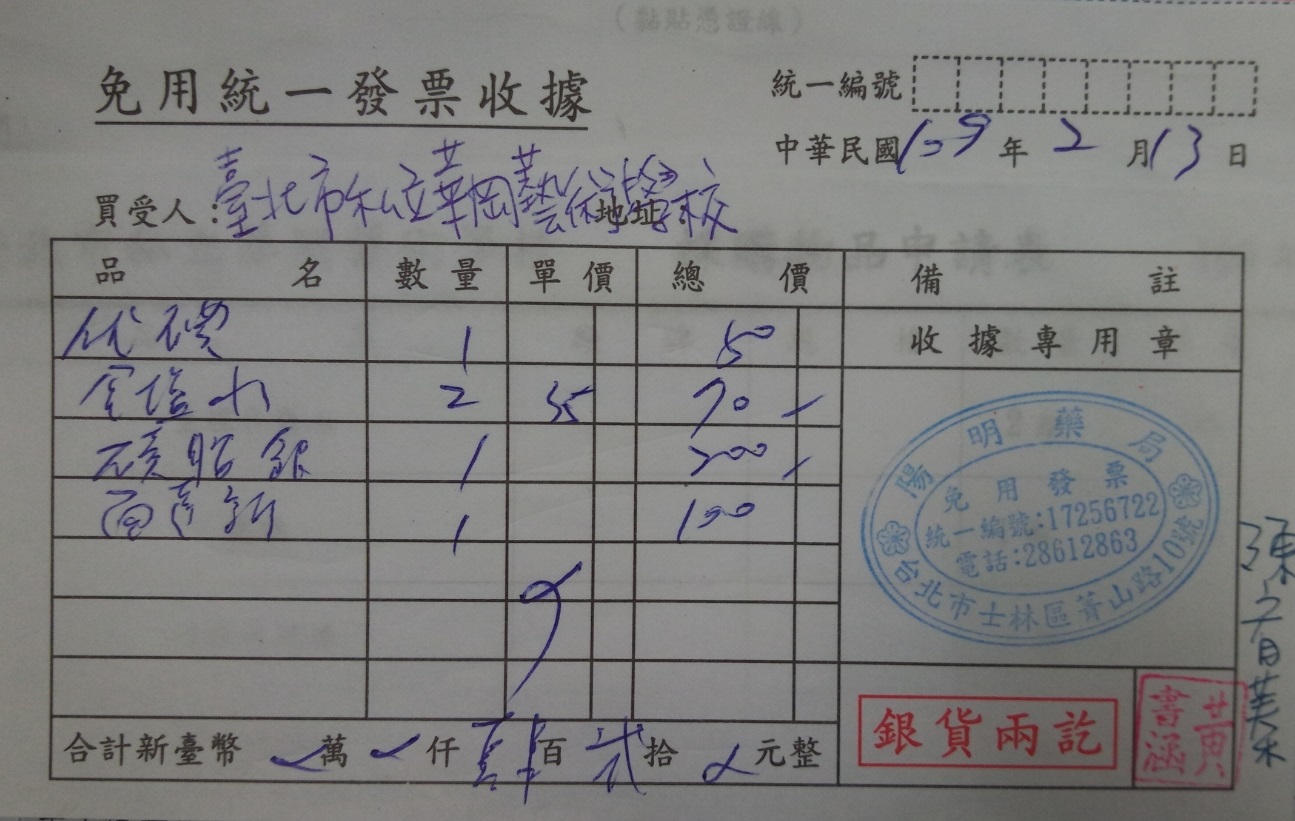 (黏貼憑證線)
免用統一發票收據
統一編號
中華民國109年2月13日
買受人:臺北市私立華岡藝術學校 地址:
品名 數量 單價 總價 備註
收據專用章
優碘 1 50
食塩水 2 35 70
磺胺銀 1 200
1 100
陽明藥局
免用發票
統一編號:17256722
電話:28612863
台北市士林區菁山路10號
合計新臺幣 萬 仟 肆百貳拾 元整
銀貨兩訖
黃書涵